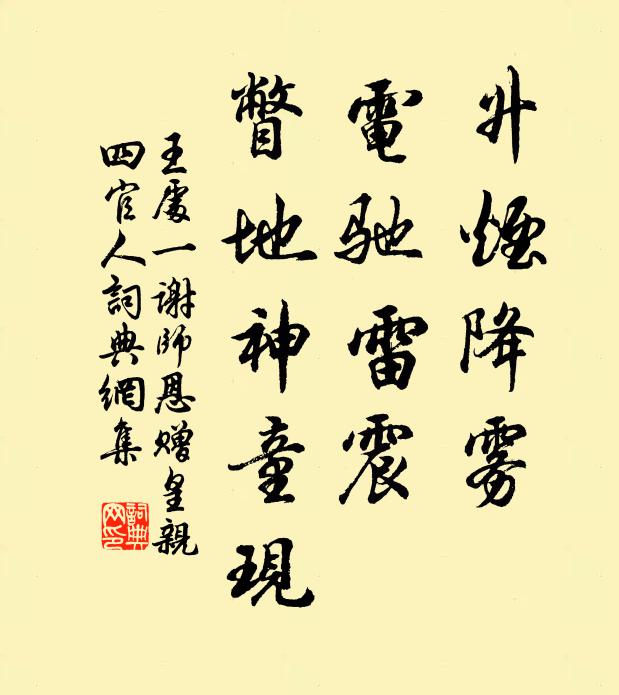 升煙降雾
電馳雷震
瞥地神童現
王處一謝師恩赠皇親
四官人詞典網集
詞典
网印